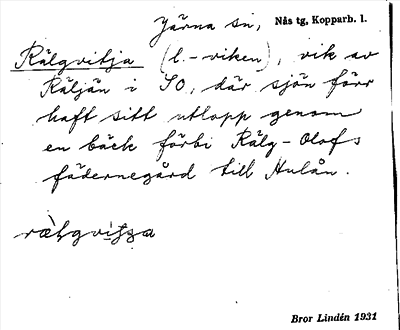 Järna sn, Nås tg, Kopparb. l.
Rälgvitja (l. -viken), vik av
Räljän i SO, där sjön förr
haft sitt utlopp genom
en bäck förbi Rälg-Olofs
fädernegård till Hulån.
Bror Lindén 1931